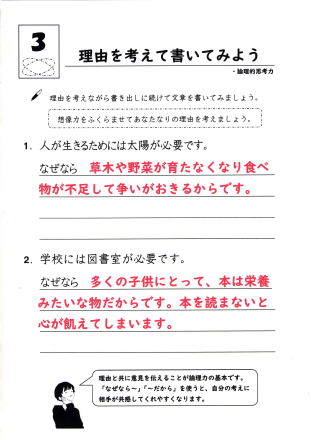 3
理由を考えて書いてみよう
・論理的思考力
理由を考えながら書き出しに続けて文章を書いてみましょう。
想像力をふくらませてあなたなりの理由を考えましょう。
1. 人が生きるためには太陽が必要です。
なぜなら 草木や野菜が育たなくなり食べ
物が不足して争いがおきるからです。
2. 学校には図書室が必要です。
なぜなら 多くの子供にとって、本は栄養
みたいな物だからです。本を読まないと
心が飢えてしまいます。
理由と共に意見を伝えることが論理力の基本です。
「なぜなら～」「～だから」を使うと、自分の考えに
相手が共感してくれやすくなります。